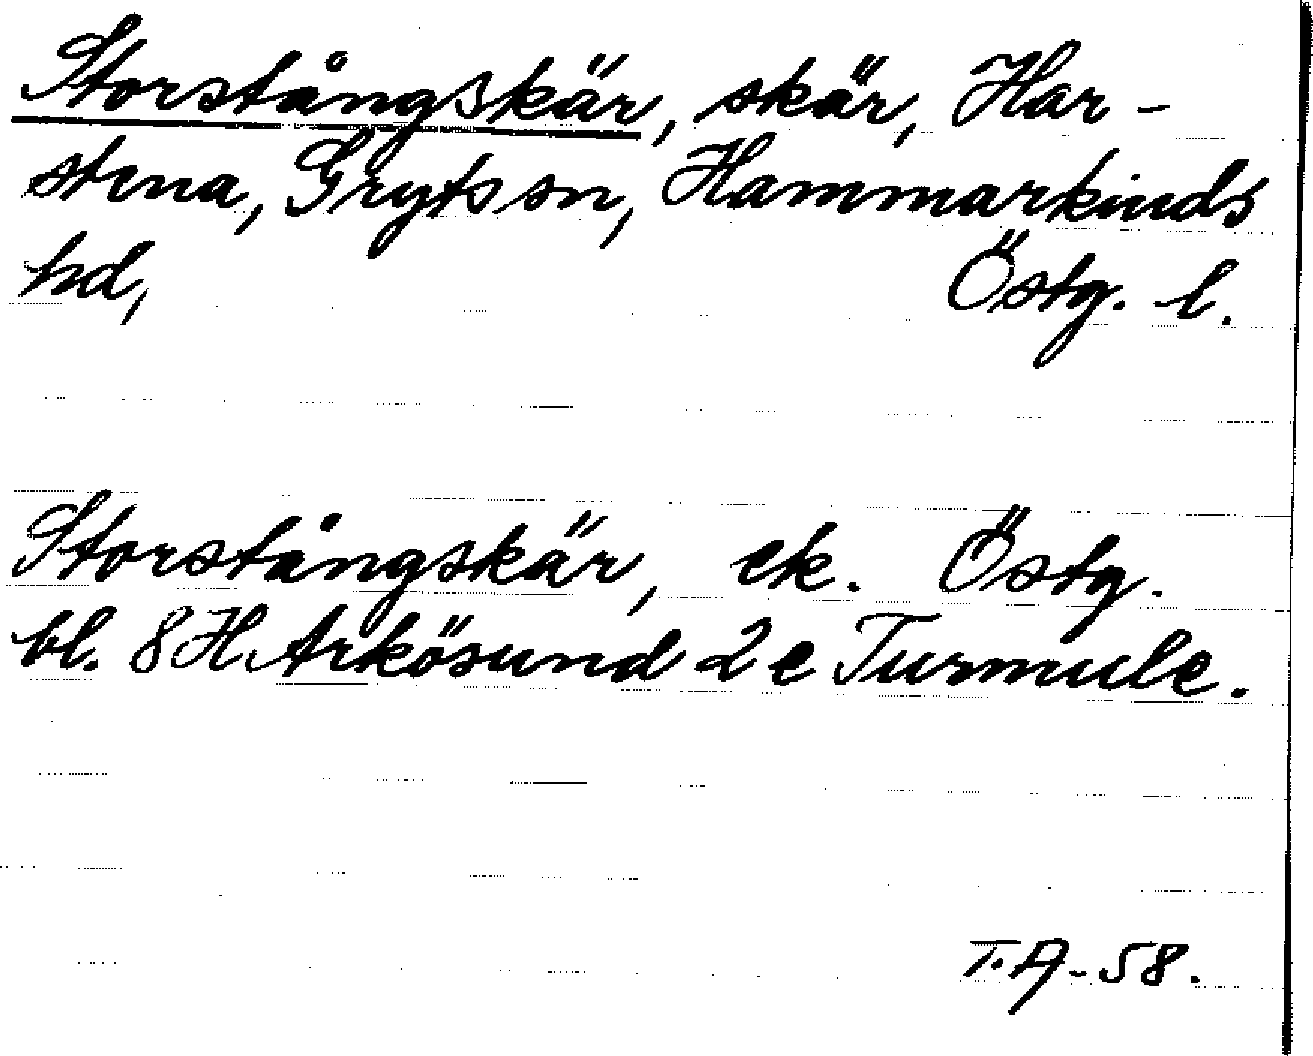 Storstångskär, skär, Har-
stena, Gryts sn, Hammarkinds
hd, Östg. l.
Storstångskär, ek. Östg.
bl. 8 H. Arkösund 2 e Turmule.
T.A-58.